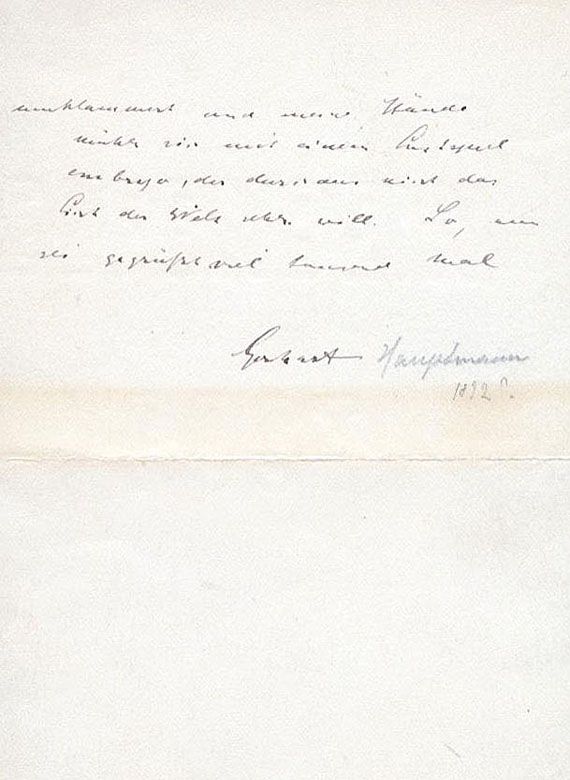 umklammert und meine Hände
mich mit einem Lustspiel
embryo, der durchaus nicht das
Licht der Welt sehen will. So, nun
sei gegrüßt viel tausend Mal
Gerhart Hauptmann
1892?